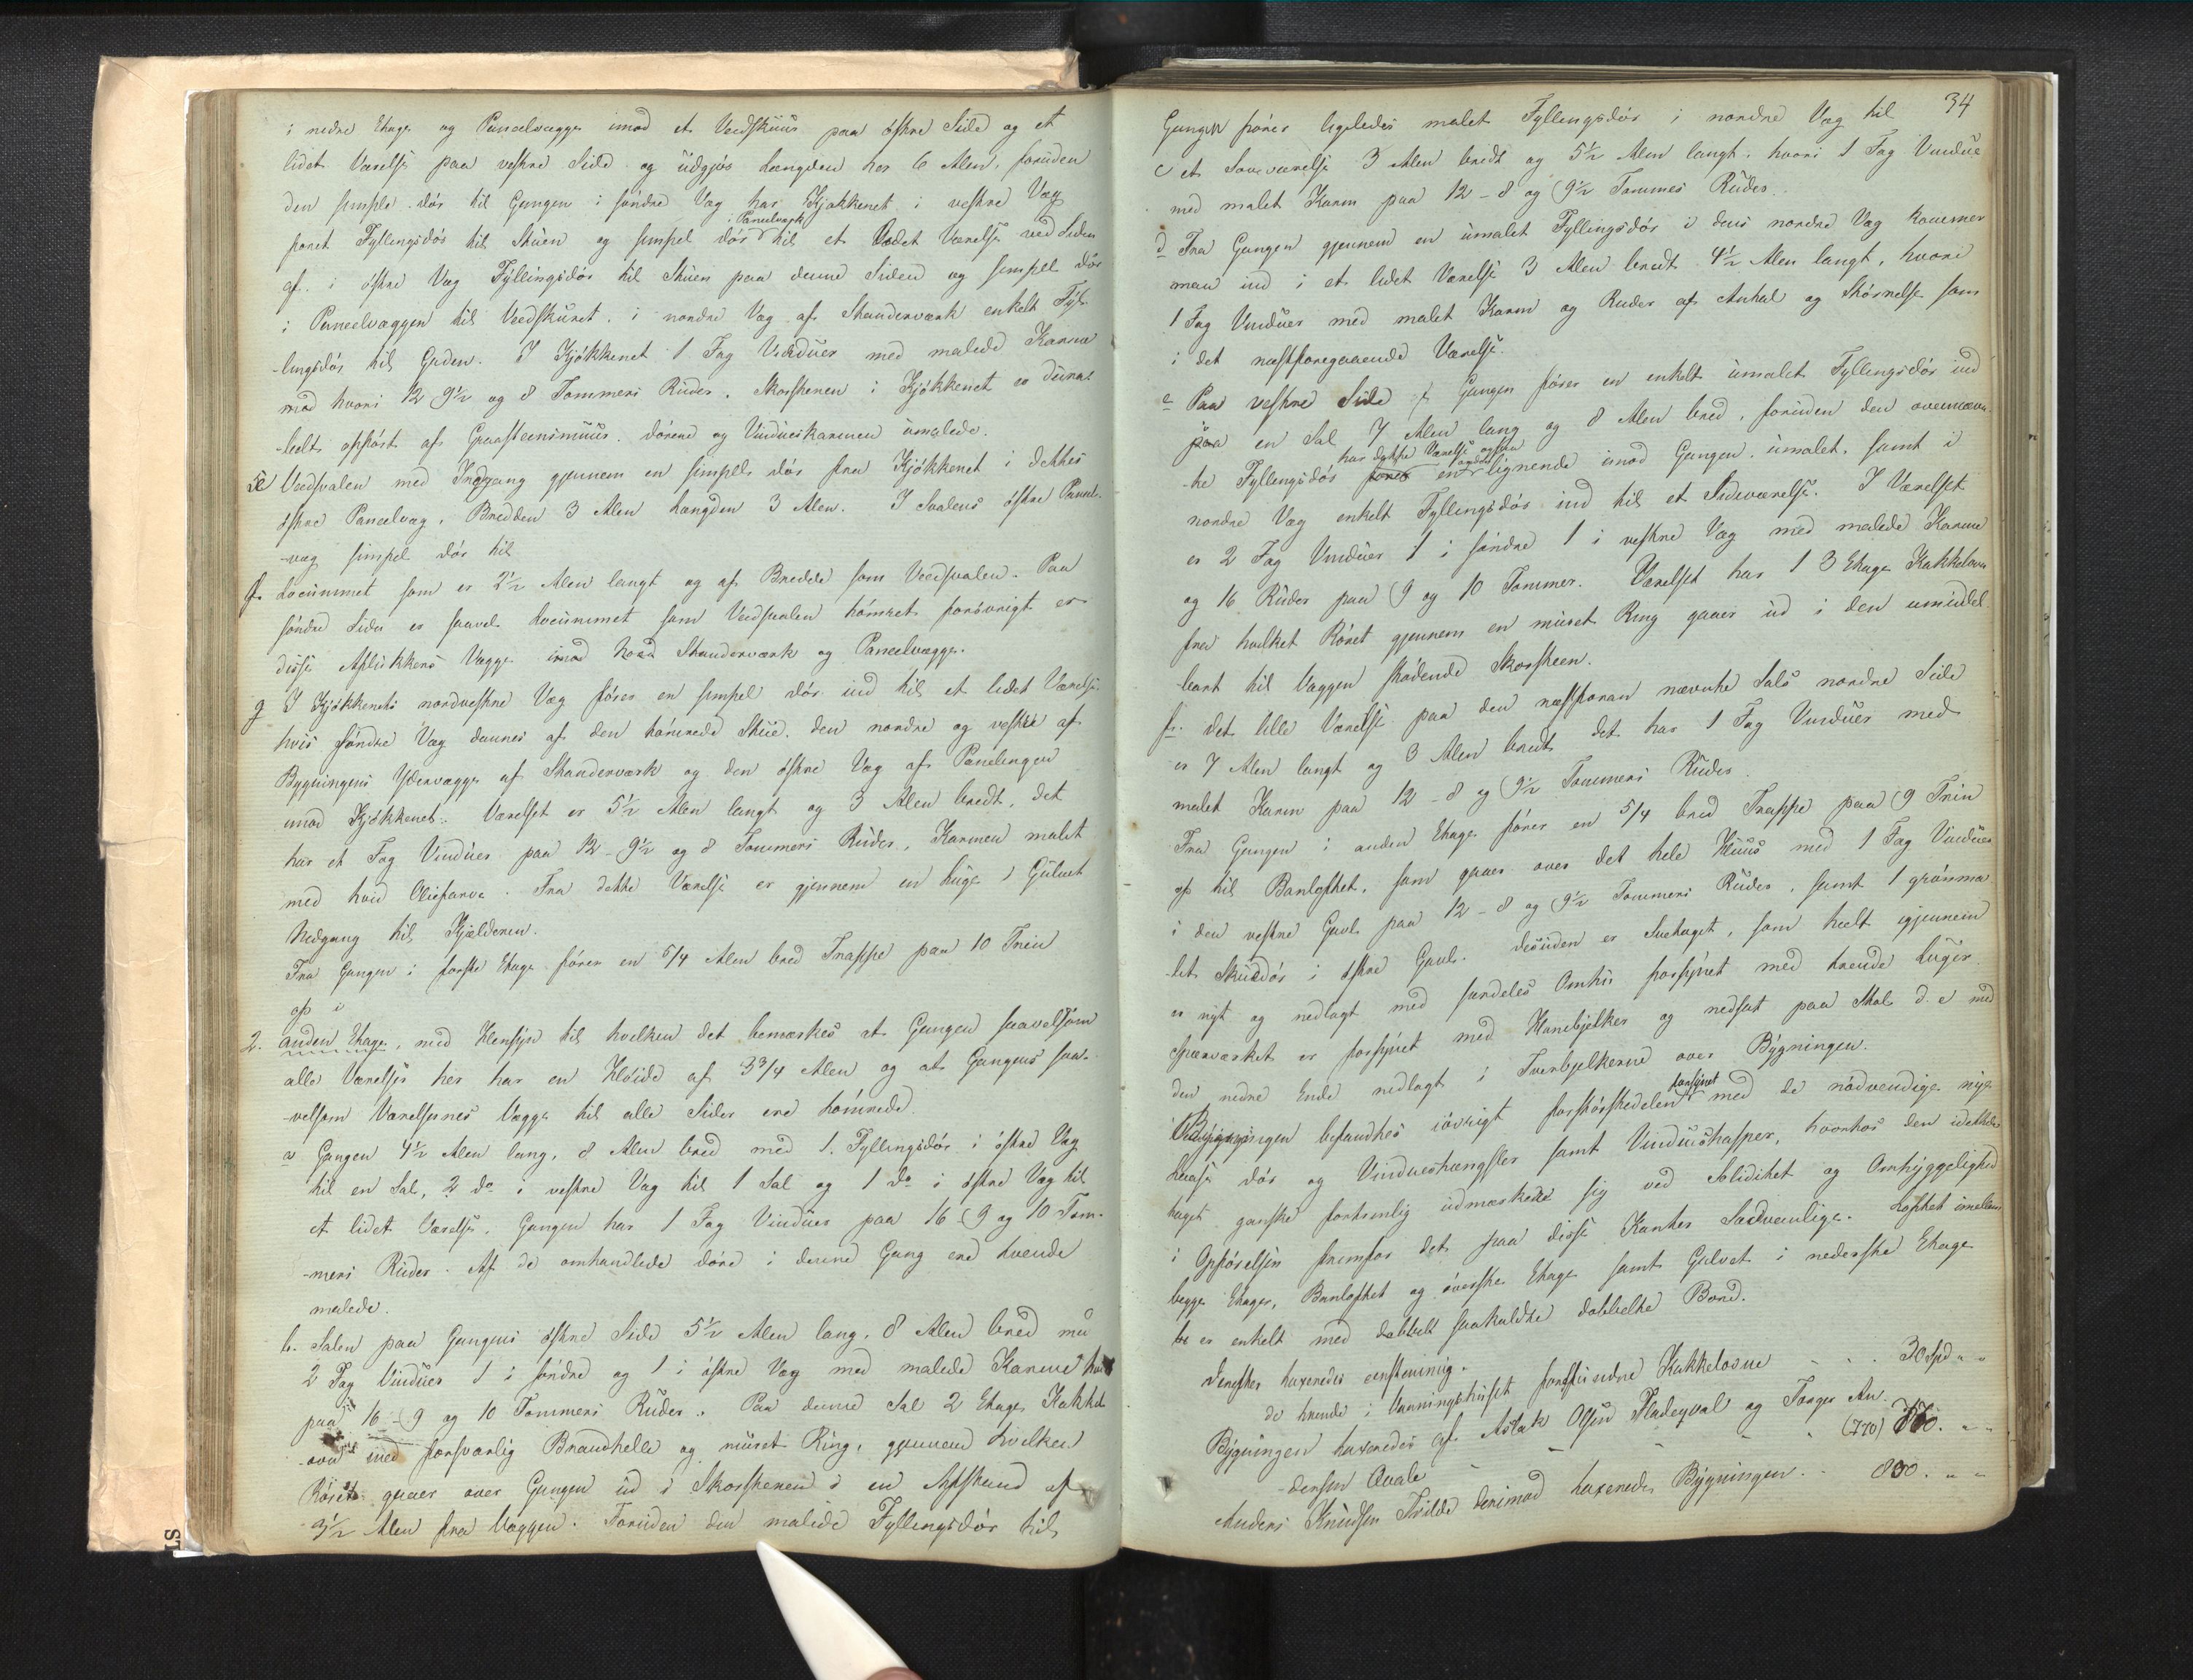 i nedre Etage og Paneelvægge imod et Vedskuur paa östre Side og et
lidet Værelse paa vestre Side og udgjør Længden her 6 Alen, foruden
den simple dör til Gangen i söndre Væg har Kjøkkenet i vestre Væg
Fyllingsdör til Stuen og simpel dör i Paneelværk til et lidet Værelse ved Siden
af. i östre Væg Fyllingsdör til Stuen paa denne Siden og simpel dör
i Paneelvæggen til Vedskuret. i nordre Væg af Standerværk enkelt Fyl-
-lingsdör til Gaden. I Kjökkenet 1 Fag Vinduer med malede Karme
med hvori 12 9½ og 8 Tommers Ruder. Skorstenen i Kjökkenet er
opfört af Graasteensmuur. dörene og Vindueskarmen umalede.
Vedsvalen med Indgang gjennem en simpel dör fra Kjökkenet i dettes
östre Paneelvæg. Bredden 3 Alen Længden 3 Alen. I Svalens östre Paneel-
-væg simpel dör til
f. Locummet som er 2½ Alen langt og af Bredde som Vedsvalen. Paa
söndre Side er saavel Locummet som Vedsvalen tömret forövrigt er
disse Aflukkers Vægge imod Nord Standerværk og Paneelvægge.
g I Kjökkenets nordvestre Væg förer en simpel dör ind til et lidet Værelse
hvis söndre Væg dannes af den tömrede Stue, den nordre og vestre af
Bygningens Ydervægge af Standerværk og den östre Væg af Panelingen
imod Kjökkenet. Værelset er 5½ Alen langt og 3 Alen bredt, det
har et Fag Vinduer paa 12 - 9½ og 8 Tommers Ruder, Karmen malet
med hvid Oliefarve. Fra dette Værelse er gjennem en Luge i Gulvet
Nedgang til Kjælderen.
Fra Gangen i förste Etage förer en 5/4 Alen bred Trappe paa 10 Trin
op i
2. anden Etage, med Hensyn til hvilken det bemærkes at Gangen saavelsom
alle Værelser her har en Höide af 3¾ Alen og at Gangens saa-
-velsom Værelsernes Vægge til alle Sider ere tömrede.
a Gangen 4½ Alen lang, 8 Alen bred med 1. Fyllingsdör i östre Væg
til en Sal, 2 do i vestre Væg til 1 Sal og 1 do i östre Væg til
et lidet Værelse. Gangen har 1 Fag Vinduer paa 16 9 og 10 Tom-
-mers Ruder. Af de omhandlede döre i denne Gang ere tvende
malede.
b. Salen paa Gangens östre Side 5½ Alen lang, 8 Alen bred
2 Fag Vinduer 1 i söndre og 1 i östre Væg med malede Karme
paa 16 9 og 10 Tommers Ruder. Paa denne Sal 2 Etages Kakkel-
-ovn med forsvarlig Brandhelle og muret Ring, gjennem hvilken
Röret gaaer over Gangen ud i Skorstenen i en Afstand af
3½ Alen fra Væggen. Foruden den malede Fyllingsdör til
34
Gangen förer ligeledes malet Fyllingsdör i nordre Væg til
c et Soveværelse 3 Alen bredt og 5½ Alen langt, hvori 1 Fag Vindue
med malet Karm paa 12 - 8 og 9½ Tommes Ruder.
d Fra Gangen gjennem en umalet Fyllingsdör i dens nordre Væg kommer
man ind i et lidet Værelse 3 Alen bredt 4½ Alen langt, hvori
1 Fag Vinduer med malet Karm og Ruder af Antal og Störrelse som
i det næstforegaaende Værelse.
e Paa vestre Side af Gangen förer en enkelt umalet Fyllingsdör ind
paa en Sal 7 Alen lang og 8 Alen bred, foruden den ovennævn-
-te Fyllingsdör har dette Værelse ogsaa en lignende imod Gangen, umalet, samt i
nordre Væg enkelt Fyllingsdör ind til et Sideværelse. I Værelset
er 2 Fag Vinduer 1 i söndre 1 i vestre Væg med malede Karme
og 16 Ruder paa 9 og 10 Tommer. Værelset har 1 3 Etages Kakkelovn
fra hvilket Röret gjennem en muret Ring gaaer ud i den umiddel-
-bart til Væggen stödende Skorsteen.
f. det lille Værelse paa den næstforan nævnte Sals nordre Side
er 7 Alen langt og 3 Alen bredt det har 1 Fag Vinduer med
malet Karm paa 12 - 8 og 9½ Tommers Ruder.
Fra Gangen i anden Etage förer en 5/4 bred Trappe paa 9 Trin
op til Banloftet, som gaaer over det hele Huus med 1 Fag Vinduer
i den vestre Gavl paa 12 - 8 og 9½ Tommers Ruder, samt 1 grönma-
-let Skuddör i östre Gavl. desuden er Suetaget, som heelt igjennem
er nyt og nedlagt med særdeles Omhu forsynet med tvende Luger.
Spærværket er forsynet med Hanebjelker og nedsat paa Stol d. e med
den nedre Ende nedlagt i Tverbjelkerne over Bygningen.
Bygningen befandtes iövrigt forstörstedelen forsynet med de nödvendige nye
Laase dör og Vindueshængsler samt Vindueshasper, hvorhos den idethele
taget ganske fortrinlig udmærkede sig ved Soliditet og Omhyggelighed
i Opförelsen fremfor det paa disse Kanter Sædvanlige. Loftet imellem
begge Etager, Banloftet og överste Etage samt Gulvet i nederste Etage
er enkelt med dobbelt saakaldte dobbelte Bord.
Derefter taxeredes eenstemmig.
de tvende i Vaaningshuset forefundne Kakkelovne . . . 30 Spd " "
Bygningen taxeredes af Aslak Olsen Fladeqval og Torger An-
-dersen Qvale - - - . (770) . " "
Anders Knudsen Trilde derimod taxerede Bygningen . . 800. " "